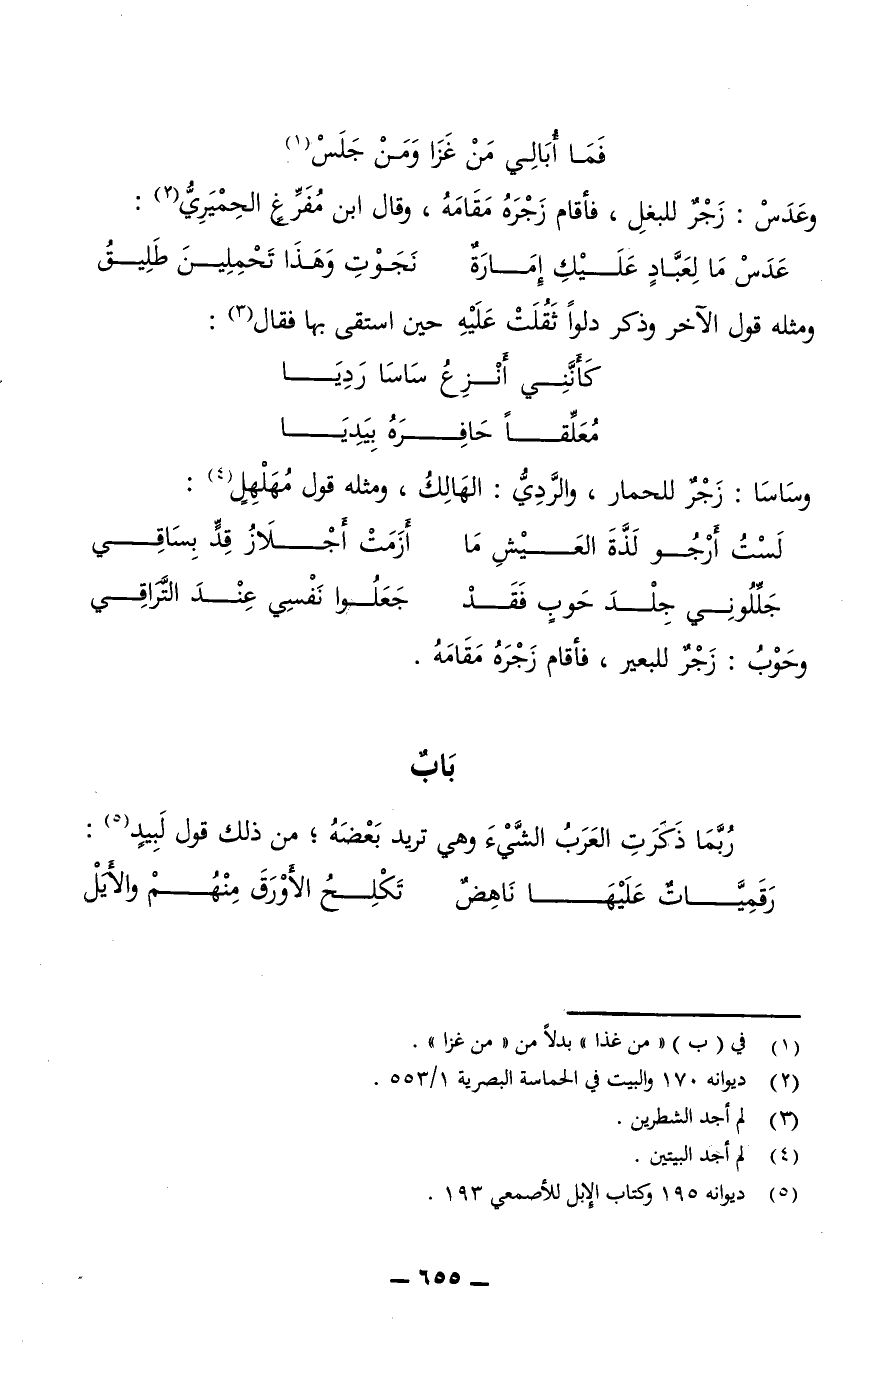 فَمَا أُبَالِي مَنْ غَزَا وَمَنْ جَلَسْ(١)
وعَدَسْ : زَجْرٌ للبغلِ ، فأقام زَجْرَهُ مَقَامَهُ ، وقال ابن مُفَرِّغٍ الحِمْيَرِيُّ(٢) :
عَدَسْ مَا لِعَبَّادٍ عَلَيْكِ إِمَارَةٌ نَجَوْتِ وَهَذَا تَحْمِلِينَ طَلِيقُ
ومثله قول الآخر وذكر دلواً ثَقُلَتْ عَلَيْهِ حين استقى بها فقال(٣) :
كَأَنَّنِي أَنْزِعُ سَاسَا رَدِيَا
مُعَلِّقاً حَافِرَهُ بِيَدِيَا
وسَاسَا : زَجْرٌ للحمار ، والرَّدِيُّ : الهَالِكُ ، ومثله قول مُهَلْهِلٍ(٤) :
لَسْتُ أَرْجُو لَذَّةَ العَيْشِ مَا أَزَمَتْ أَجْلَازُ قِدٍّ بِسَاقِي
جَلِّلُونِي جِلْدَ حَوبٍ فَقَدْ جَعَلُوا نَفْسِي عِنْدَ التَّرَاقِي
وحَوْبُ : زَجْرٌ للبعير ، فأقام زَجْرَهُ مَقَامَهُ .
بَابٌ
رُبَّمَا ذَكَرَتِ العَرَبُ الشَّيْءَ وهي تريد بَعْضَهُ ؛ من ذلك قول لَبِيدٍ(٥) :
رَقَمِيَّاتٌ عَلَيْهَا نَاهِضٌ تَكْلِحُ الأَوْرَقَ مِنْهُمْ والأَيَلْ
(١) في ( ب ) « من غذا » بدلاً من « من غزا » .
(٢) ديوانه ١٧٠ والبيت في الحماسة البصرية ٥٥٣/١ .
(٣) لم أجد الشطرين .
(٤) لم أجد البيتين .
(٥) ديوانه ١٩٥ وكتاب الإبل للأصمعي ١٩٣ .
ــ ٦٥٥ ــ